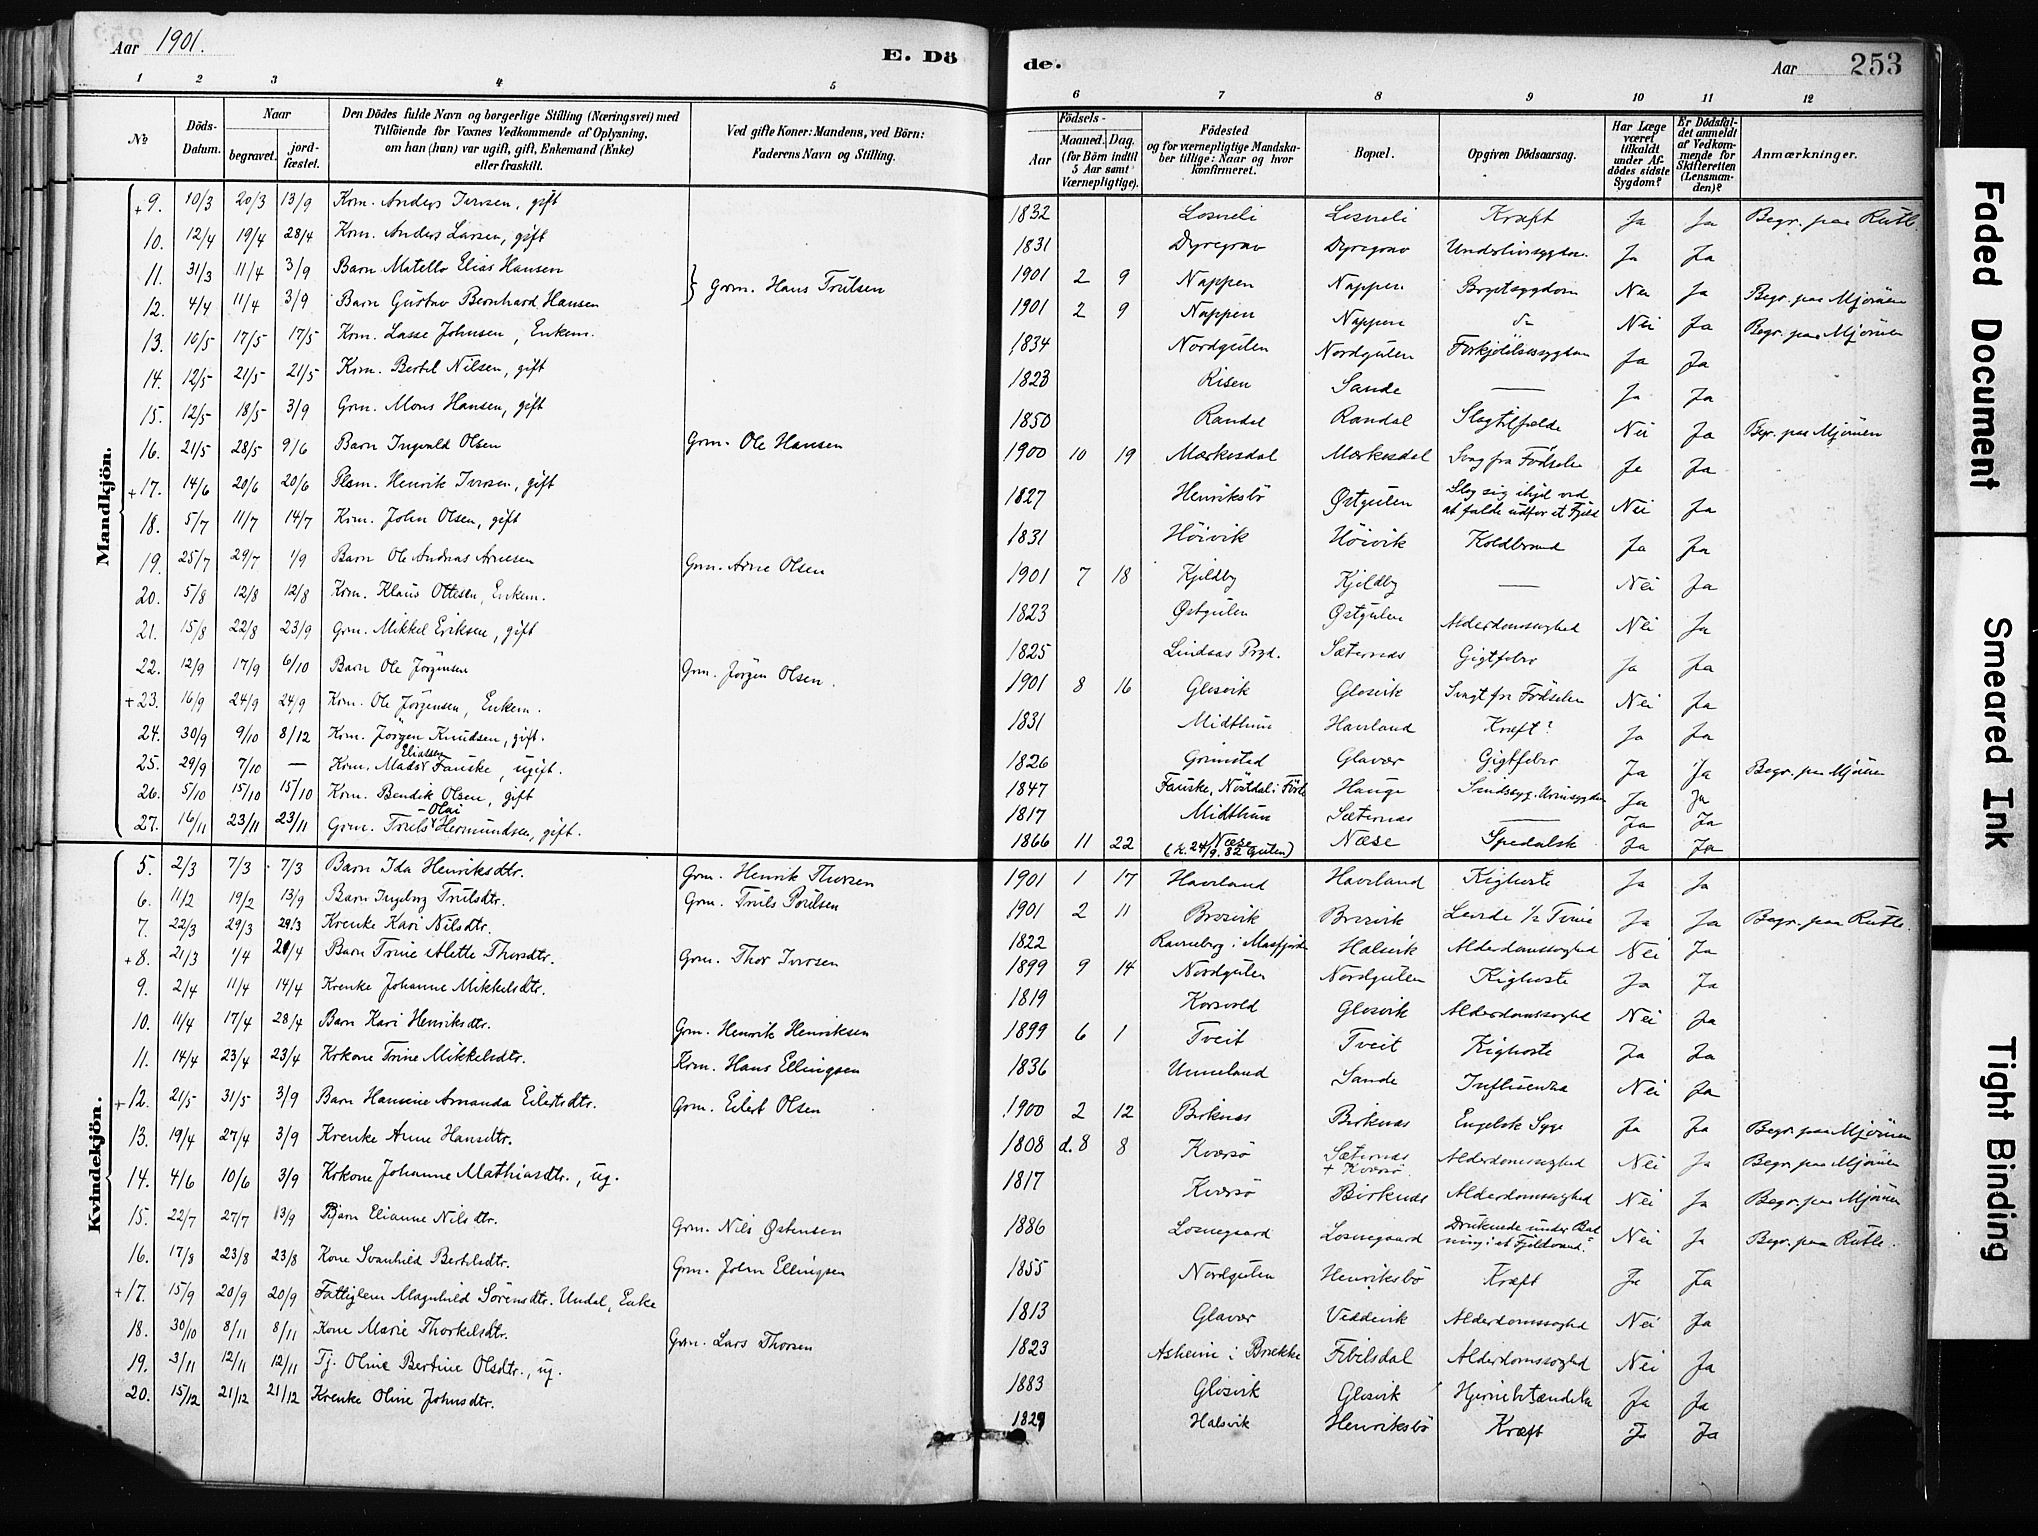 Aar 1901.
E. Dö
de.
Aar
253
1 2 3 4 5
6 7 8 9 10 11 12
No
Döds-Datum.
Naar
begravet.
jordfæstet.
Den Dödes fulde Navn og borgerlige Stilling (Næringsvei) med
Tilföiende for Voxnes Vedkommende af Oplysning,
om han (hun) var ugift, gift, Enkemand (Enke)
eller fraskilt.
Ved gifte Koner: Mandens, ved Börn:
Faderens Navn og Stilling.
Födsels-
Aar
Maaned. Dag.
(for Börn indtil
5 Aar samt
Værnepligtige).
Födested
og for værnepligtige Mandska-
ber tillige: Naar og hvor
konfirmeret.
Bopæl.
Opgiven Dödsaarsag.
Har Læge
været
tilkaldt
under Af-
dödes sidste
Sygdom?
Er Dödsfal-
det anmeldt
af Vedkom-
mende for
Skifteretten
(Lensman-
den)?
Anmærkninger.
Mandkjön.
+9. 10/3 20/3 13/9 Krm. Anders Iversen, gift 1832 Losneli Losneli Kræft Ja Ja Begr. paa Rutle
10. 12/4 19/4 28/4 Krm. Anders Larsen, gift 1831 Dyregrov Dyregrov Underlivssygdom Ja Ja
11. 31/3 11/4 3/9 Barn Matello Elias Hansen } Grm. Hans Trulsen 1901 2 9 Nappen Nappen Brystsygdom Nei Ja Begr. paa Mjömen
12. 4/4 11/4 3/9 Barn Gustav Bernhard Hansen 1901 2 9 Nappen Nappen do Nei Ja Begr. paa Mjömen
13. 10/5 17/5 17/5 Krm. Lasse Johnsen, Enkem. 1834 Nordgulen Nordgulen Forkjölelsessygdom Ja Ja
14. 12/5 21/5 21/5 Krm. Bertel Nilsen, gift 1823 Risen Sande — Ja Ja
15. 12/5 18/5 3/9 Grm. Mons Hansen, gift 1850 Randal Randal Slagtilfælde Nei Ja Begr. paa Mjömen
16. 21/5 28/5 9/6 Barn Ingvald Olsen Grm. Ole Hansen 1900 10 19 Mærkesdal Mærkesdal Svag fra Födselen Ja Ja
+17. 14/6 20/6 20/6 Plsm. Henrik Iversen, gift 1827 Henriksbö Østgulen Slog sig ihjel ved
at falde udfor et Fjeld Nei Ja
18. 5/7 11/7 14/7 Krm. John Olsen, gift 1831 Höivik Höivik Koldbrand Ja Ja
19. 25/7 29/7 1/9 Barn Ole Andreas Arnesen Grm. Arne Olsen 1901 7 18 Kjeldby Kjeldby — Nei Ja
20. 5/8 12/8 12/8 Krm. Klaus Ottesen, Enkem. 1823 Østgulen Østgulen Alderdomssvaghed Nei Ja
21. 15/8 22/8 23/9 Grm. Mikkel Eriksen, gift 1825 Lindaas Prgd. Sæternes Gigtfeber Ja Ja
22. 12/9 17/9 6/10 Barn Ole Jörgensen Grm. Jörgen Olsen. 1901 8 16 Glosvik Glosvik Svagt fra Födselen Nei Ja
+23. 16/9 24/9 24/9 Krm. Ole Jörgensen, Enkem. 1831 Midthun Haveland Kræft? Ja Ja
24. 30/9 9/10 8/12 Krm. Jörgen Knudsen, gift. 1826 Grimstad Glavær Gigtfeber Ja Ja Begr. paa Mjömen
25. 29/9 7/10 — Krm. Mads Eliassen Fauske, ugift. 1847 Fauske, Nöstdal i Förde Hauge Sindssyg. Urinsygdom Ja Ja
26. 5/10 15/10 15/10 Krm. Bendik Olsen, gift 1817 Midthun Sæternes — Ja Ja
27. 16/11 23/11 23/11 Grm. Truls Olai Hermundsen, gift. 1866 11 22 Næse
(k. 24/9.82 Gulen) Næse Spedalsk Ja Ja
Kvindekjön.
5. 2/3 7/3 7/3 Barn Ida Henriksdtr. Grm. Henrik Thorsen 1901 1 17 Haveland Haveland Kighoste Ja Ja
6. 11/2 19/2 13/9 Barn Ingeborg Trulsdtr. Grm. Truls Poulsen 1901 2 11 Brosvik Brosvik Levede 1/2 Time Ja Ja Begr. paa Rutle.
7. 22/3 29/3 29/3 Krenke Kari Nilsdtr. 1822 Ravneberg i Masfjorden Halsvik Alderdomssvaghed Nei Ja
+8. 21/3 1/4 21/4 Barn Trine Alette Thorsdtr. Grm. Thor Iversen 1899 9 14 Nordgulen Nordgulen Kighoste Ja Ja
9. 2/4 11/4 14/4 Krenke Johanne Mikkelsdtr. 1819 Korsvold Glosvik Alderdomssvaghed Nei Ja
10. 11/4 17/4 28/4 Barn Kari Henriksdtr. Grm. Henrik Henriksen 1899 6 1 Tveit Tveit Kighoste Ja Ja
11. 14/4 23/4 23/4 Krkone Trine Mikkelsdtr. Krm. Hans Ellingsen 1836 Unneland Sande Influenza Nei Ja
+12. 21/5 31/5 3/9 Barn Hansine Amanda Eilertsdtr. Grm. Eilert Olsen 1900 2 12 Birknes Birknes Engelsk Syge Ja Ja Begr. paa Mjömen
13. 19/4 27/4 3/9 Krenke Anne Hansdtr. 1808 d. 8 8 Kversö Sæternes
+ Kversö Alderdomssvaghed Nei Ja Begr. paa Mjömen
14. 4/6 10/6 3/9 Krkone Johanne Mathiasdtr., ug. 1817 Kversö Birknes Alderdomssvaghed Nei Ja Begr. paa Mjömen
15. 22/7 27/7 13/9 Barn Elianne Nilsdtr. Grm. Nils Østensen 1886 Losnegaard Losnegaard Druknede under Bad-
ning i et Fjeldvand. Nei Ja Begr. paa Rutle.
16. 17/8 23/8 23/8 Kone Svanhild Bertelsdtr. Grm. John Ellingsen 1855 Nordgulen Henriksbö Kræft Ja Ja
+17. 15/9 20/9 20/9 Fattiglem Magnhild Sörensdtr. Undal, Enke 1813 Glavær Veddevik Alderdomssvaghed Nei Ja
18. 30/10 8/11 8/11 Kone Marie Thorkelsdtr. Grm. Lars Thorsen 1823 Asheim i Brække Fibelsdal Alderdomssvaghed Nei Ja
19. 3/11 12/11 12/11 Tj. Oline Bertine Olsdtr., ug. 1883 Glosvik Glosvik Hjernebetændelse Ja Ja
20. 15/12 21/12 21/12 Krenke Oline Johnsdtr. 1829 Halsvik Henriksbö Kræft Ja Ja
Faded Document
Smeared Ink
Tight Binding